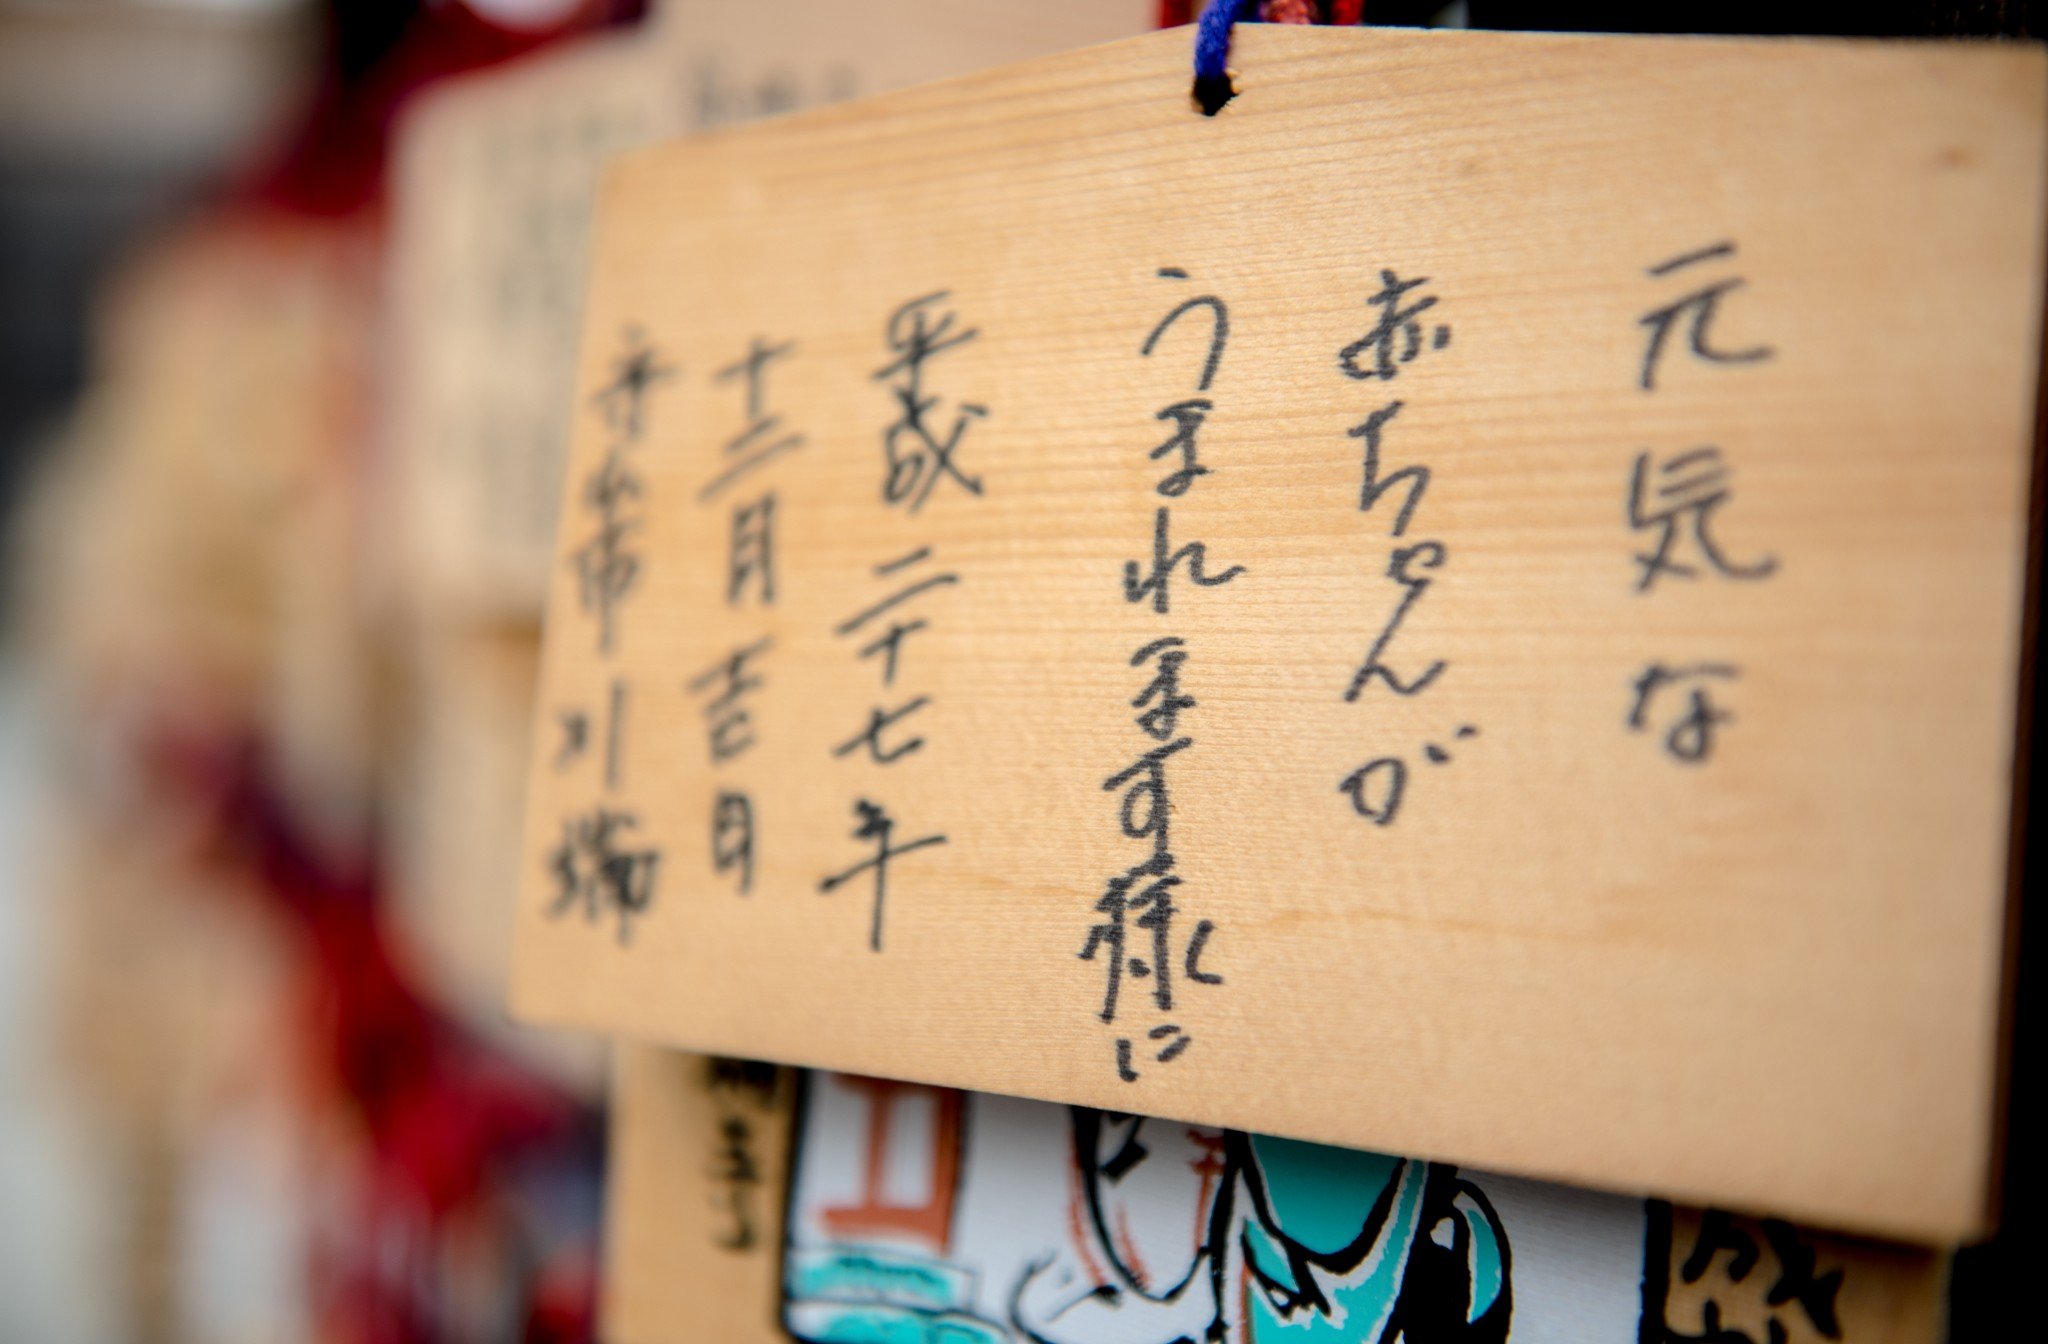 元気な
赤ちゃんが
うまれます様に
平成二十七年
十二月吉日
市川端